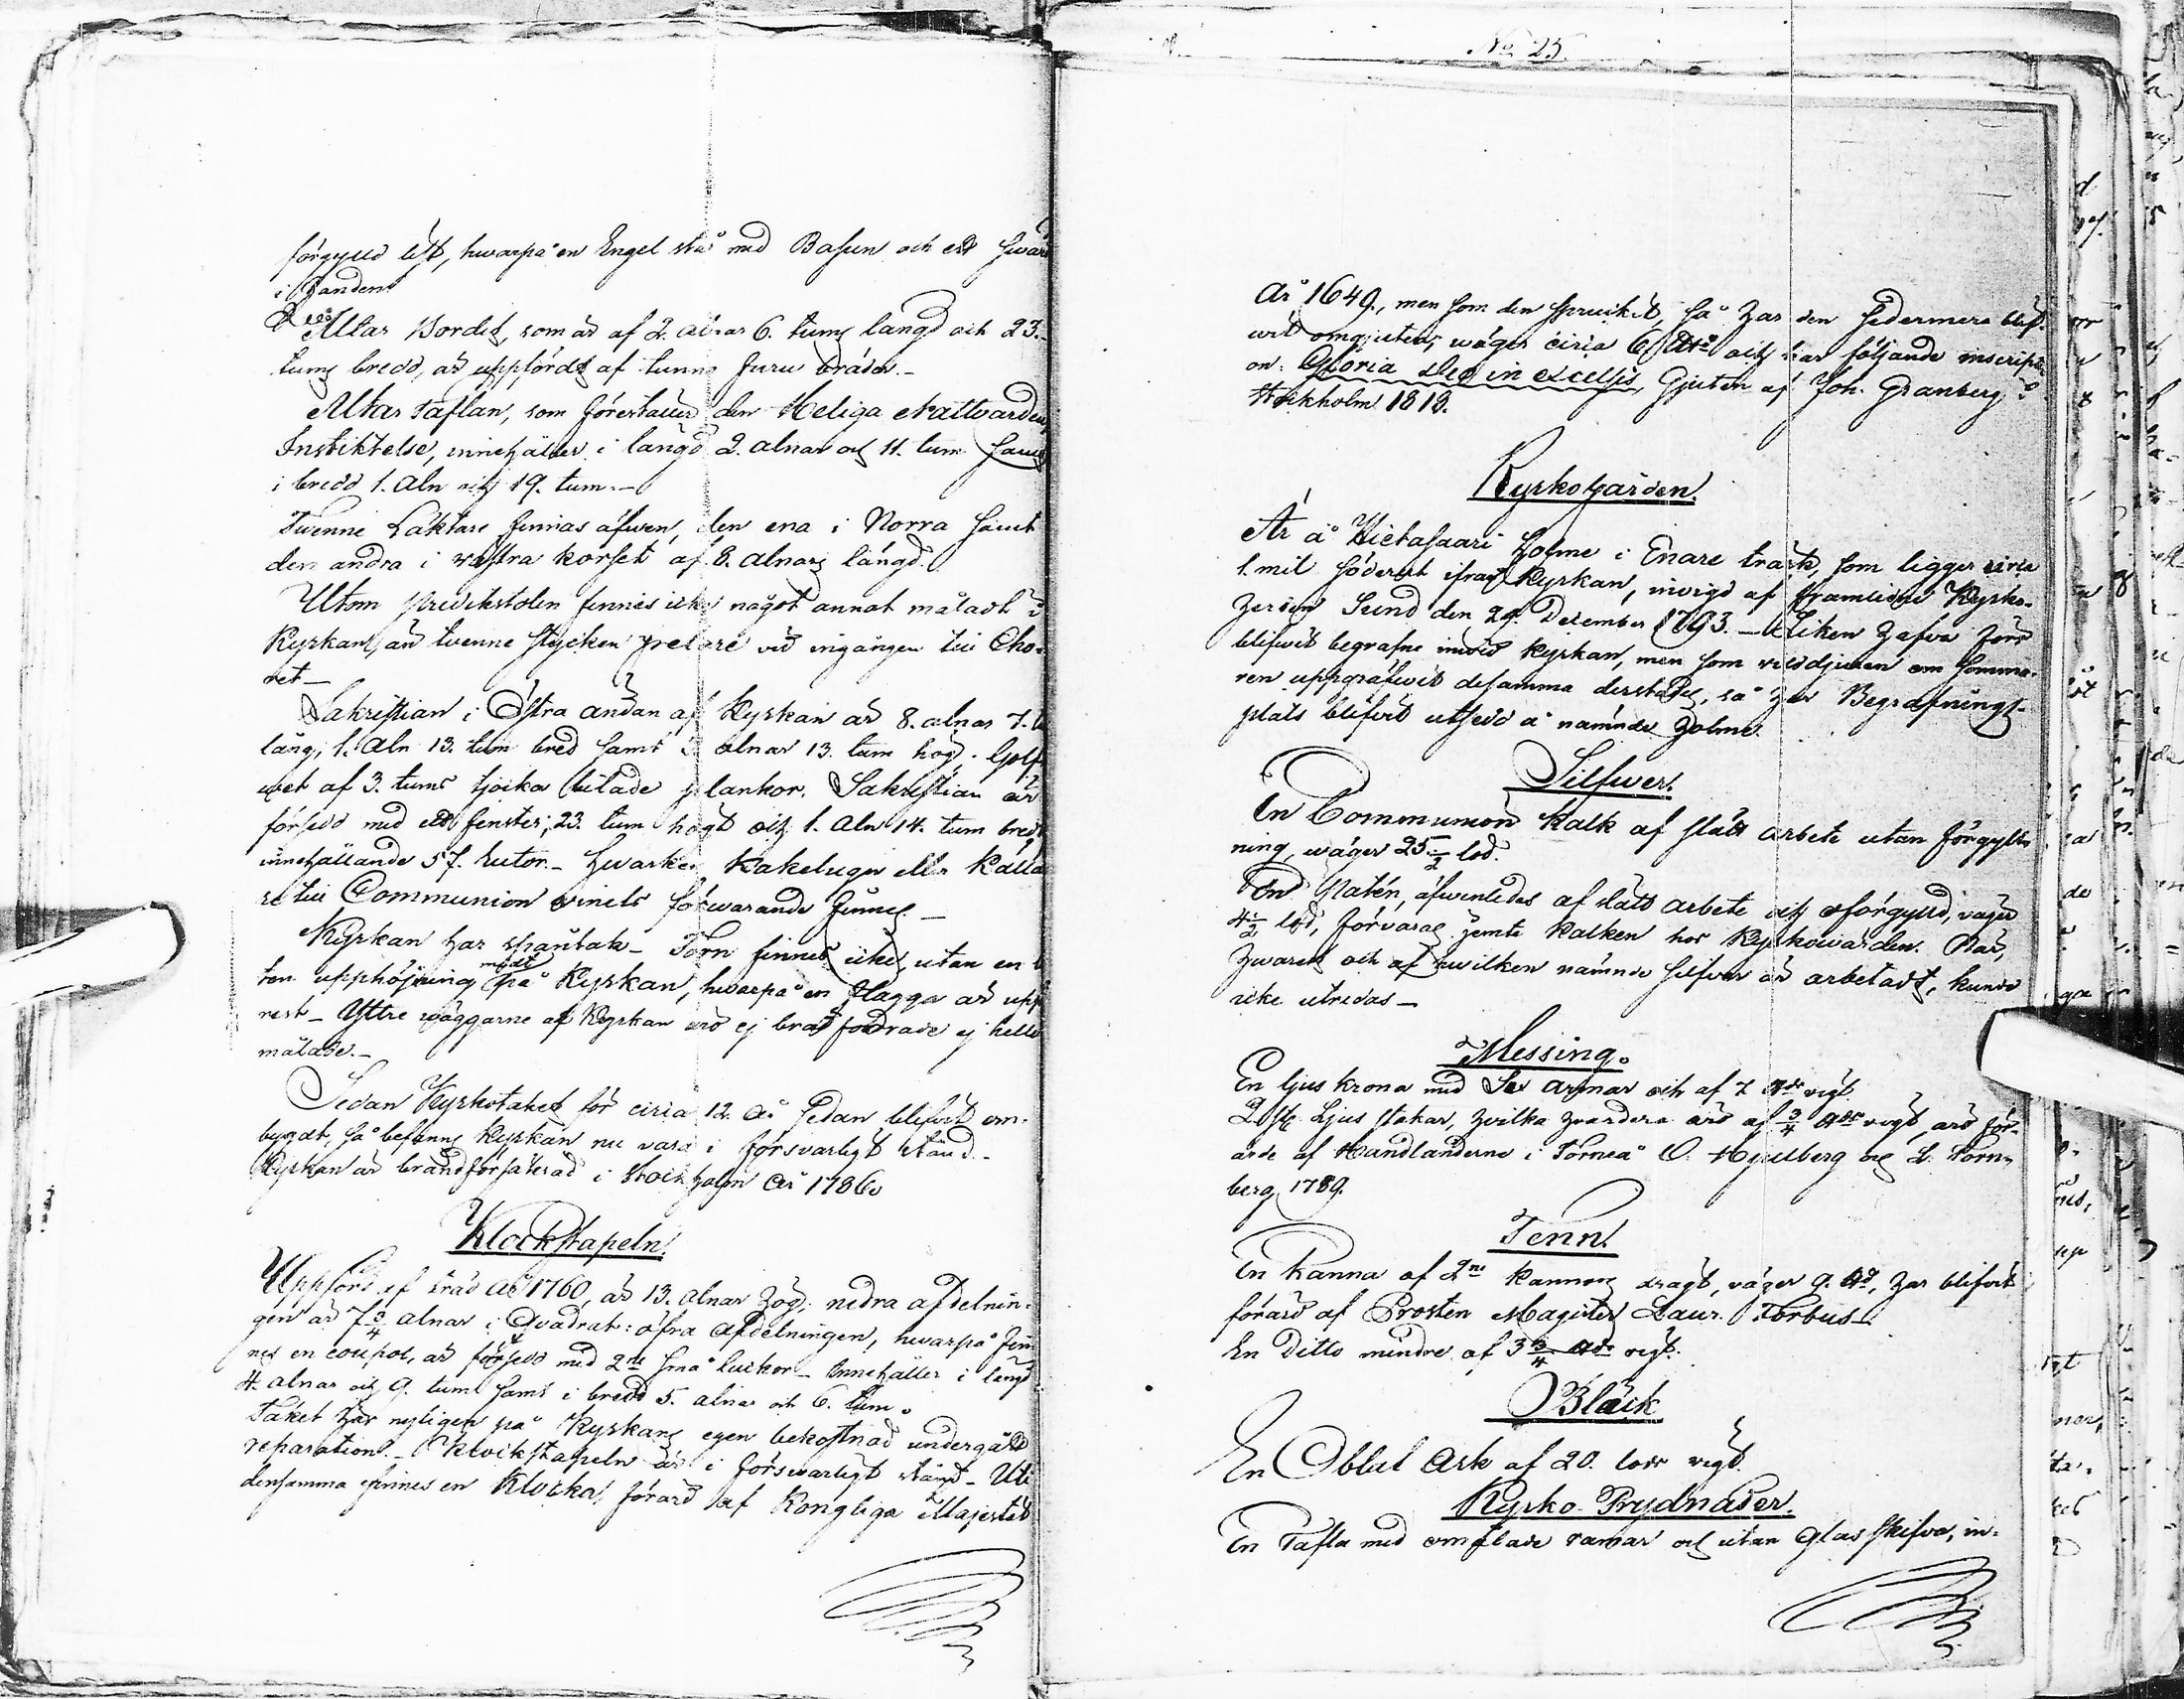 förgylld list, hwarpå en Engel stå med Basun och ett Swärd
i Handen.
Altar Bordet, som är af 2. alnar 6. tums längd och 23.
tums bredd, är uppfördt af tunna furu bräder.-
Altar Taflan, som föreställer den Heliga Nattvardens
Instiktelse, innehåller i längd 2. alnar och 11. tum samt
i bredd 1. Aln och 19. tum.-
Twenne Läktare finnas äfwen, den ena i Norra samt
den andra i västra korset af 8. alnars längd.
Utom predikstolen finnes icke något annat måladt i
Kyrkan, än twenne stycken pelare vid ingången till Cho-
ret -
Sakristian i Östra ändan af Kyrkan är 8. alnar 7.
lång, 1. Aln 13. tum bred samt 3 alnar 13. tum hög. Golf-
wet af 3. tums tjocka bilade plankor. Sakristian är
försedd med ett fenster, 23. tum högt och 1. Aln 14. tum bredt,
innehållande 57. rutor.- Hwarken Kakelugn eller Källa-
re till Communion vinets förwarande finnes -
Kyrkan har spåntak - Torn finnes icke, utan en
ten upphöjning midt på Kyrkan, hwarpå en flagga är upp-
rest - Yttre wäggarne af Kyrkan äro ej brädfodrade ej heller
målade.-
Sedan Kyrkotaket för circa 12. år sedan blifvit om-
bygdt, så befanns Kyrkan nu vara i försvarligt stånd.-
Kyrkan är brandförsäkrad i Stockholm År 1786.
Klockstapeln.
Uppförd af träd År 1760, är 13. alnar hög, nedra afdelnin-
gen är 7 3/4 alnar i Qvadrat: öfra afdelningen, hwarpå fin-
nes en coupol, är försedd med 2ne små luckor - Innehåller i längd
4. alnar och 9. tum samt i bredd 5. alnar och 6. tum.
Taket har nyligen på Kyrkans egen bekostnad undergått
reparation.- Klockstapeln är i försvarligt stånd - Uti
densamma finnes en Klocka, förärd af Kongliga Majestät
No 25.
År 1649., men som den spruckit, så har den sedermera blif-
wit omgjuten, wäger circa 6 och har följande inscripti-
on: Gloria Deo in excelsis, Gjuten af Joh. Granberg i
Stockholm 1813.
Kyrkogården.
Är å Hietasaari holme i Enare träsk, som ligger circa
1. mil söderut ifrån Kyrkan, invigd af framlidne Kyrko-
herden Sund den 29. December 1793. - Liken hafva förr
blifwit begrafne inwid Kyrkan, men som vilddjuren om somma-
ren uppgräfwit desamma derstädes, så har Begrafnings-
plats blifvit utsedd å nämnde holme.
Silfwer.
En Communion Kalk af slätt arbete utan förgyll-
ning, wäger 25 1/2 lod.
En Patén, äfwenledes af slätt arbete och oförgylld, väger
4 1/2 lod, förvaras jemte Kalken hos Kyrkowärden. När,
hwarest och af hwilken nämnde silfver är arbetadt, kunde
icke utredas -
Messing.
En ljus krona med Sex armar och af 7 vigt.
2. st. Ljus stakar, hvilka hvardera äro af 3/4 vigt, äro för-
ärde af Handlanderne i Torneå O. Hjulberg och L. Torn-
berg 1789.
Tenn.
En Kanna af 2ne Kannors dragt, väger 9. , har blifvit
förärd af Prosten Magister Laur. Forbus -
En Ditto mindre af 3 3/4 vigt.
Bläck
En Oblat Ask af 20. lods vigt.
Kyrko Prydnader.
En Tafla med ramar och utan Glas skifva, in-